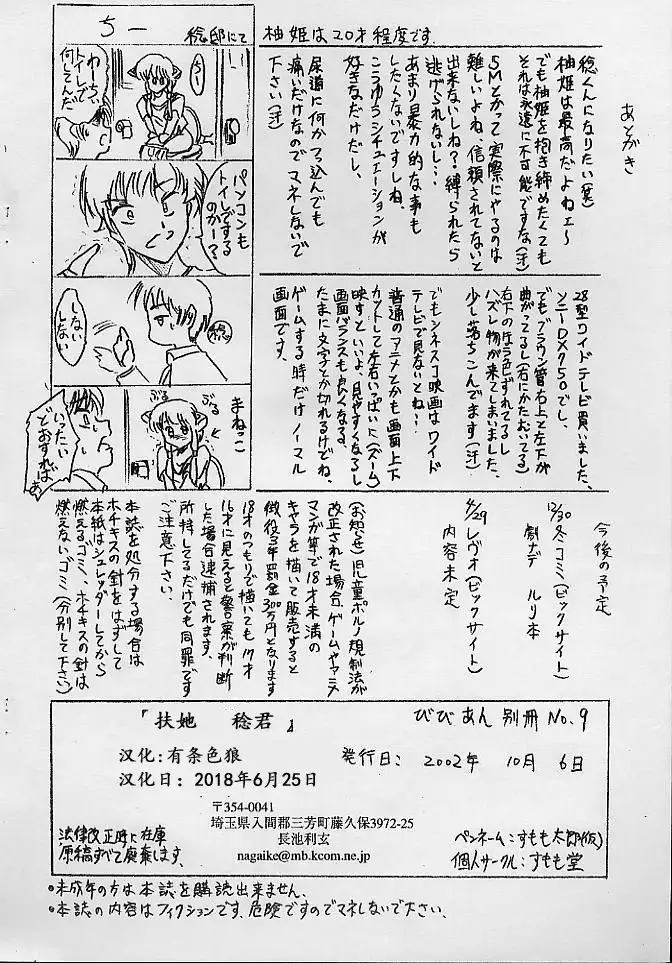 あとがき
稔くんになりたい(笑)
柚姫は最高だよねェ〜
でも柚姫を抱き締めたくても
それは永遠に不可能ですな(汗)
SMとかって実際にやるのは
難しいよね、信頼されてないと
出来ないしね?縛られたら
逃げられないし…
あまり暴力的な事も
したくないですしね、
こうゆうシチュエーションが
好きなだけだし、
尿道に何かつっ込んでも
痛いだけなのでマネしないで
下さい(汗)
柚姫は20才程度です.
稔邸にて
ちー
ちー
わーちぃ
トイレで
何してんだ
パソコンも
トイレするのかー?
しない
しない
稔
まねっこ
ぷる
ぷる
いったい
どおすれば
ぁ
28型ワイドテレビ買いました、
ソニーDX750でし、
でもブラウン管右上と左下が
曲がってるし(右にかたむいてる)
右下の圧ラ色ずれてるし
ハズレ物が来てしまいました、
少し落ちこんでます(汗)
でもシネスコ映画はワイド
テレビで見ないとね!
普通のアニメとかも画面上下
カットして左右いっぱいに(ズーム)
映すといいよ、見やすくなるし
画面バランスも良くなる、
たまに文字とか切れるけどね、
ゲームする時だけノーマル
画面です、
今後の予定
12/30 冬コミ(ビックサイト)
劇ナデ ルリ本
4/29 レヴォ(ビックサイト)
内容未定
(お知らせ)児童ポルノ規制法が
改正された場合、ゲームやアニメ
マンガ等で18才未満の
キャラを描いて販売すると
懲役3年罰金300万円となります
18才のつもりで描いても17才
16才に見えると警察が判断
した場合逮捕されます、
所持してるだけでも同罪です
ご注意下さい、
本誌を処分する場合は
ホチキスの針をはずして
本紙はシュレッダーしてから
燃えるゴミ、ホチキスの針は
燃えないゴミ(分別して下さい)
『扶她 稔君』
汉化:有条色狼
汉化日:2018年6月25日
びびあん 別冊 No.9
発行日: 2002年 10月 6日
〒354-0041
埼玉県入間郡三芳町藤久保3972-25
長池利玄
nagaike@mb.kcom.ne.jp
法律改正時に在庫
原稿すべて廃棄します.
ペンネーム:すもも太郎(仮)
個人サークル:すもも堂
•未成年の方は本誌を購読出来ません.
•本誌の内容はフィクションです.危険ですのでマネしないで下さい.